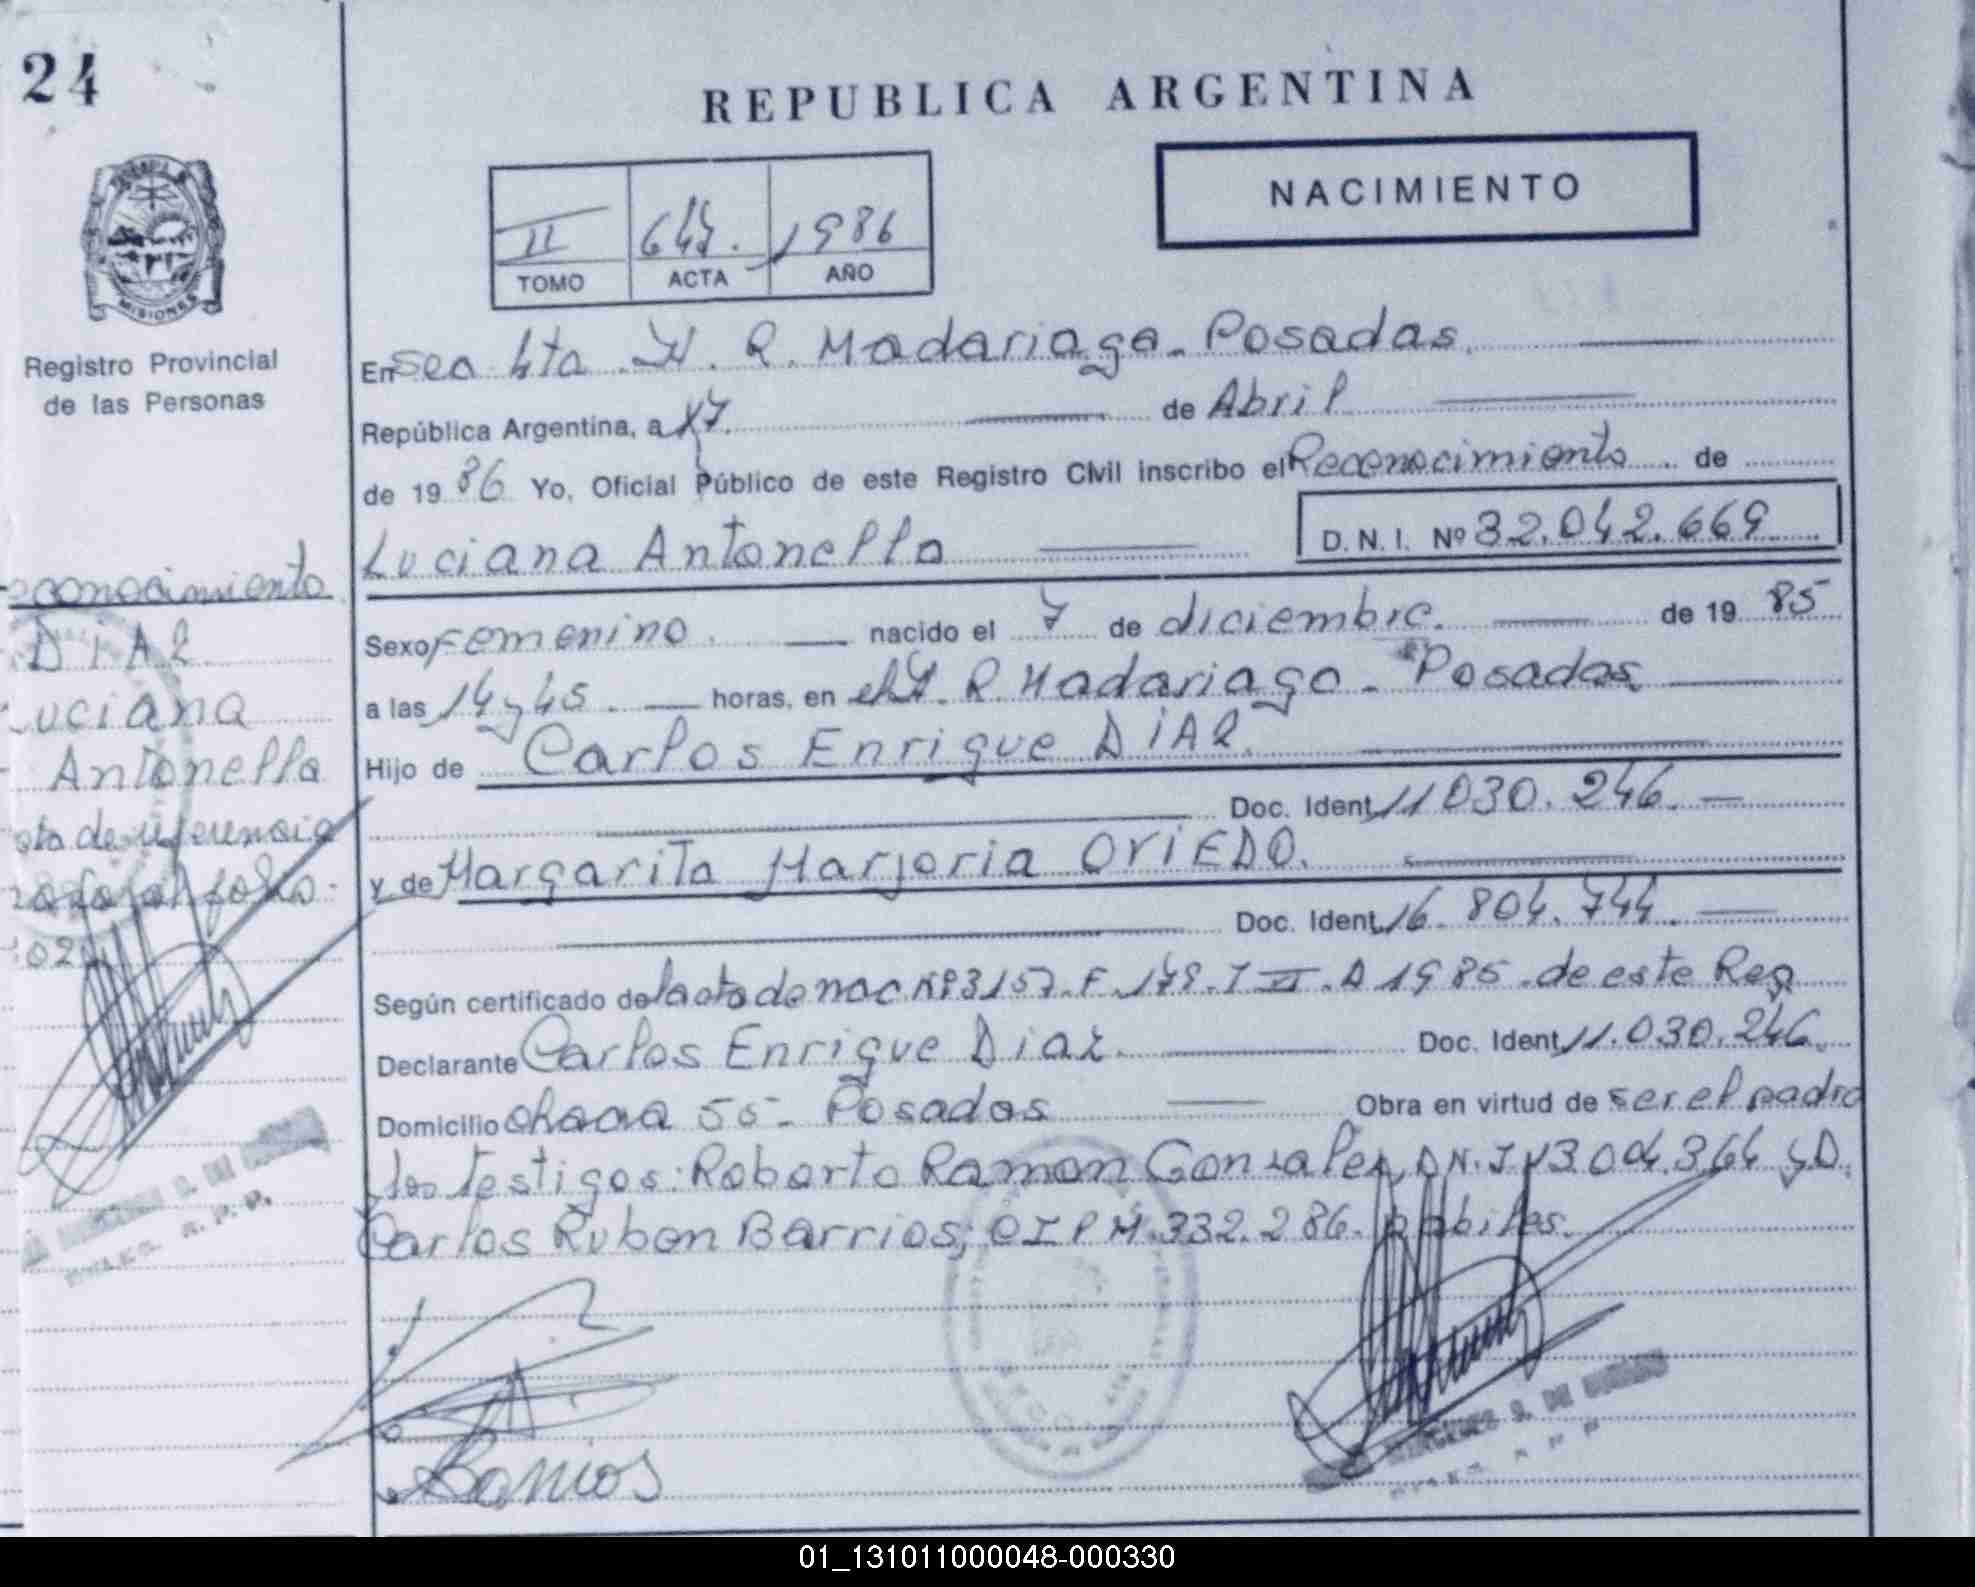 24
REPUBLICA ARGENTINA
NACIMIENTO
II 645. 1986
TOMO ACTA AÑO
MISIONES
Registro Provincial
de las Personas
En Sec 4ta H. R. Madariaga - Posadas.
República Argentina, a 17. de Abril
de 19 86 Yo, Oficial Público de este Registro Civil inscribo el Reconocimiento de
Luciana Antonella D. N. I. Nº 32.042.669
Sexo Femenino. nacido el 7 de diciembre. de 19 85
a las 14 y 45. horas, en el H. R. Madariaga - Posadas.
Hijo de Carlos Enrique DIAZ
Doc. Ident. 11.030.246.
y de Margarita Marjoria OVIEDO.
Doc. Ident. 16.804.744.
Según certificado de acta de nac Nº 3157. F. 179. T II. A 1985 - de este Reg
Declarante Carlos Enrique Diaz. Doc. Ident. 11.030.246.
Domicilio chacra 55 - Posadas Obra en virtud de ser el padre
y los testigos: Roberto Ramon Gonzalez, D.N.I. Nº 13.004.364 y D.
Carlos Ruben Barrios; CIPM. 332.286. hábiles.
Barrios
econocimiento
DIAZ
Luciana
Antonella
ota de referencia
folio
01_131011000048-000330